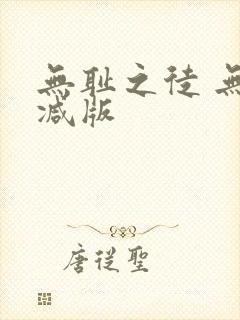 無耻之徒 無
减版
唐從聖